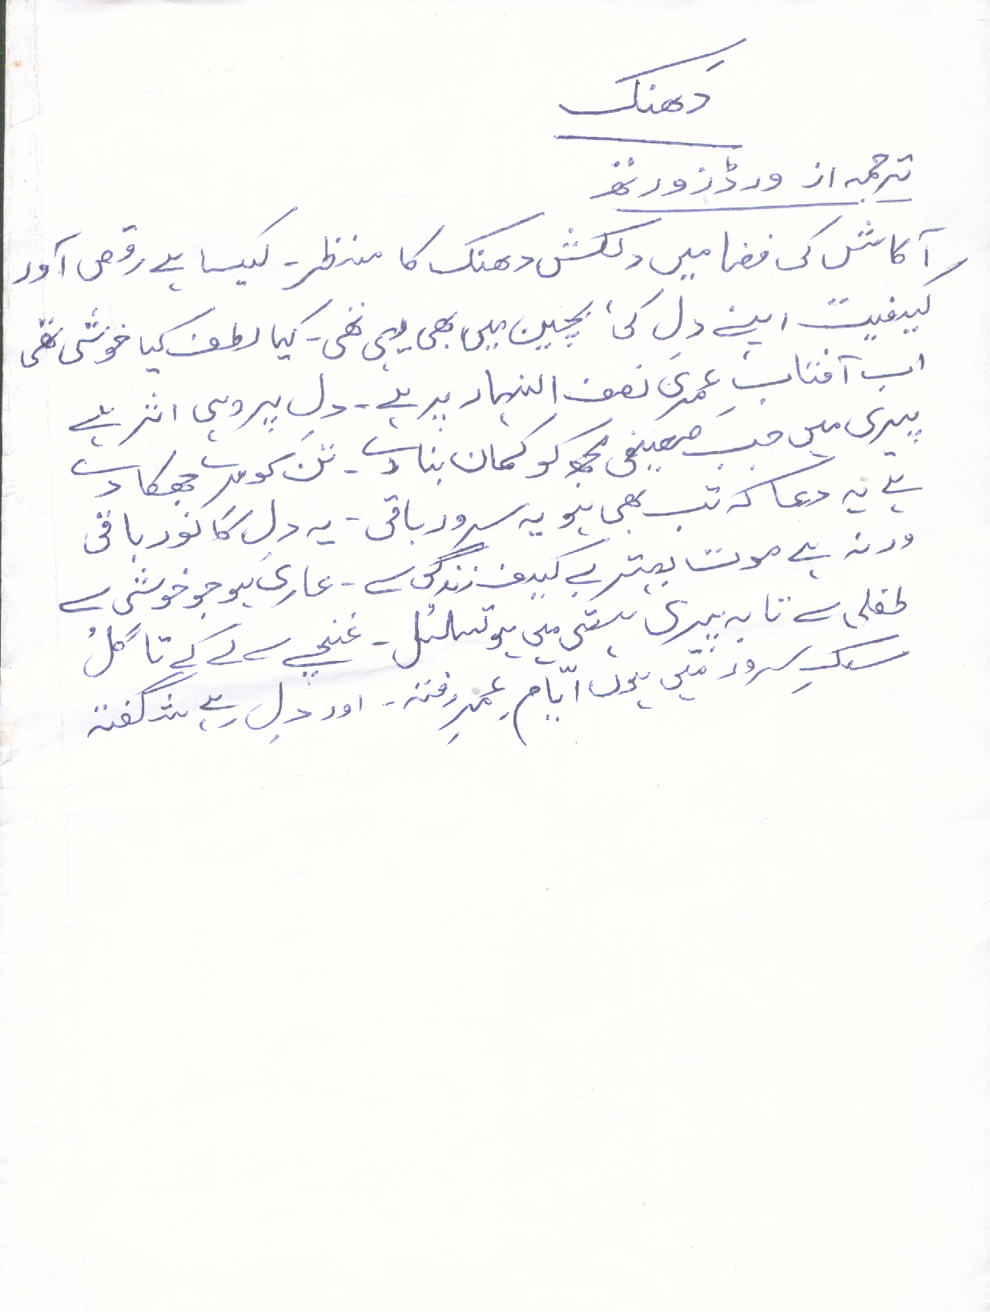 دَھنک
ترجمہ از ورڈزورتھ
آکاش کی فضا میں دلکش دھنک کا منظر۔ کیسا ہے رقص آور
کیفیت اپنے دل کی، بچپن میں بھی یہی تھی۔ کیا لطف کیا خوشی تھی
اب آفتابِ عمری نصف النہار پر ہے۔ دل پر وہی اثر ہے
پیری میں جب ضعیفی مجھ کو کمان بنا دے۔ تن کو مرے جھکا دے
ہے یہ دعا کہ تب بھی ہو یہ سرور باقی۔ یہ دل کا نور باقی
ورنہ ہے موت بہتر بے کیف زندگی سے۔ عاری ہو جو خوشی سے
طفلی سے تا بہ پیری ہستی میں ہو تسلسُل۔ غنچے سے لے کے تا گُل
سلکِ سرور میں ہوں ایّامِ عمرِ رفتہ۔ اور دل رہے شگفتہ